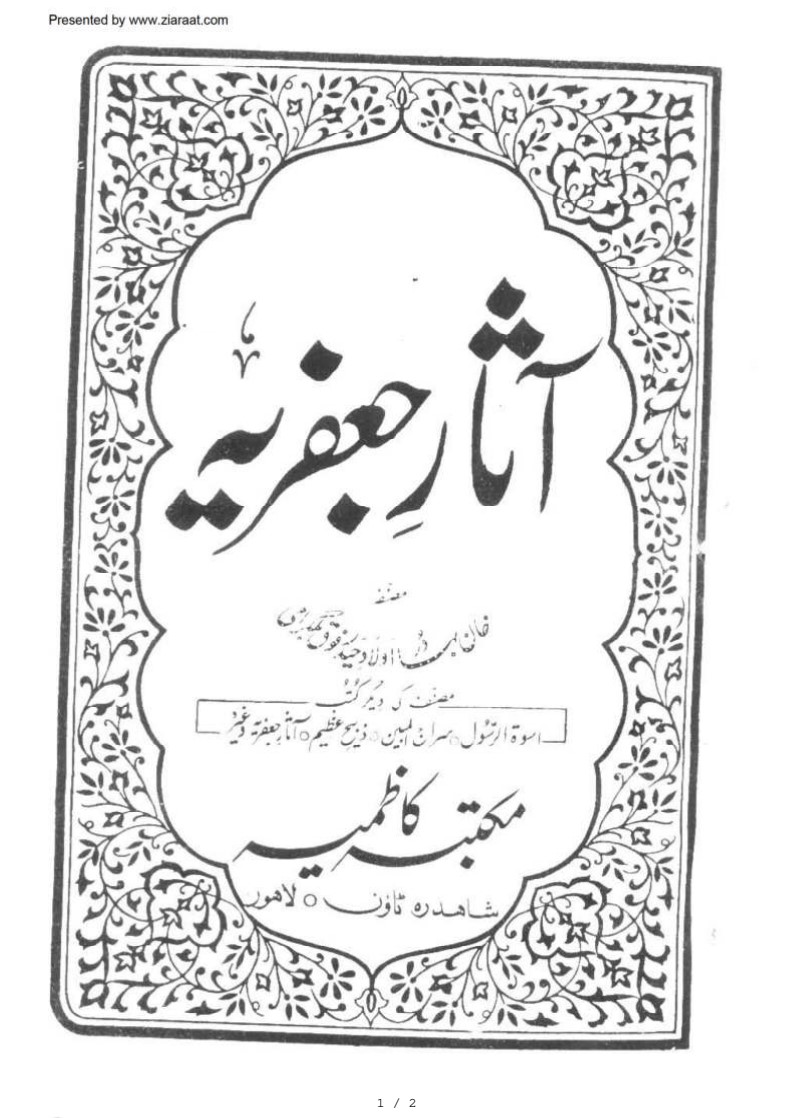 Presented by www.ziaraat.com
آثارِ جعفریہ
مصنف
خان بہادر اولاد حیدر فوق بلگرامی
مصنف کی دیگر کتب
اسوۃ الرسول ○ سراج المبین ○ ذبح عظیم ○ آثار جعفریہ وغیرہ
مکتبہ کاظمیہ
شاھدرہ ٹاؤن ○ لاھور
1 / 2